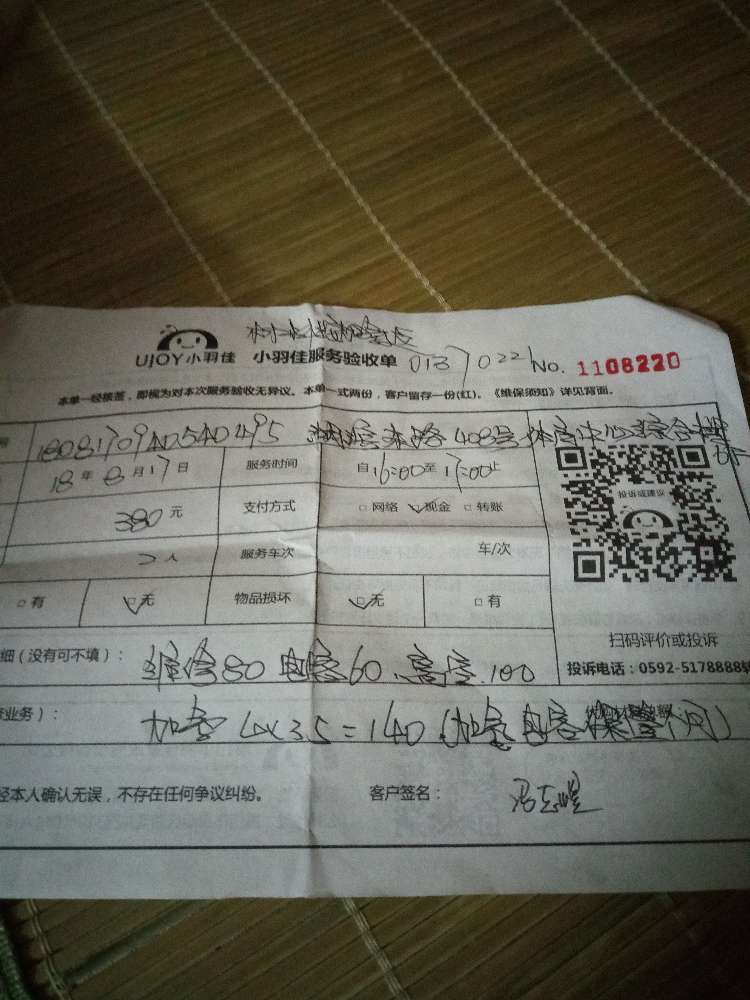 UJOY小羽佳 小羽佳服务验收单 0137022 No. 1108220
本单一经核签，即视为对本次服务验收无异议。本单一式两份，客户留存一份(红)。《维保须知》详见背面。
408号体育中心综合楼
18年8月17日 服务时间 自16:00至17:00止
投诉或建议
380元 支付方式 □网络 □现金 □转账
2人 服务车次 车/次
□有 □无 物品损坏 □无 □有
扫码评价或投诉
细（没有可不填）： 维修80 电容60、高空100
投诉电话：0592-5178888转
业务）： 加氟 4x35=140（加氟电容保
经本人确认无误，不存在任何争议纠纷。 客户签名：